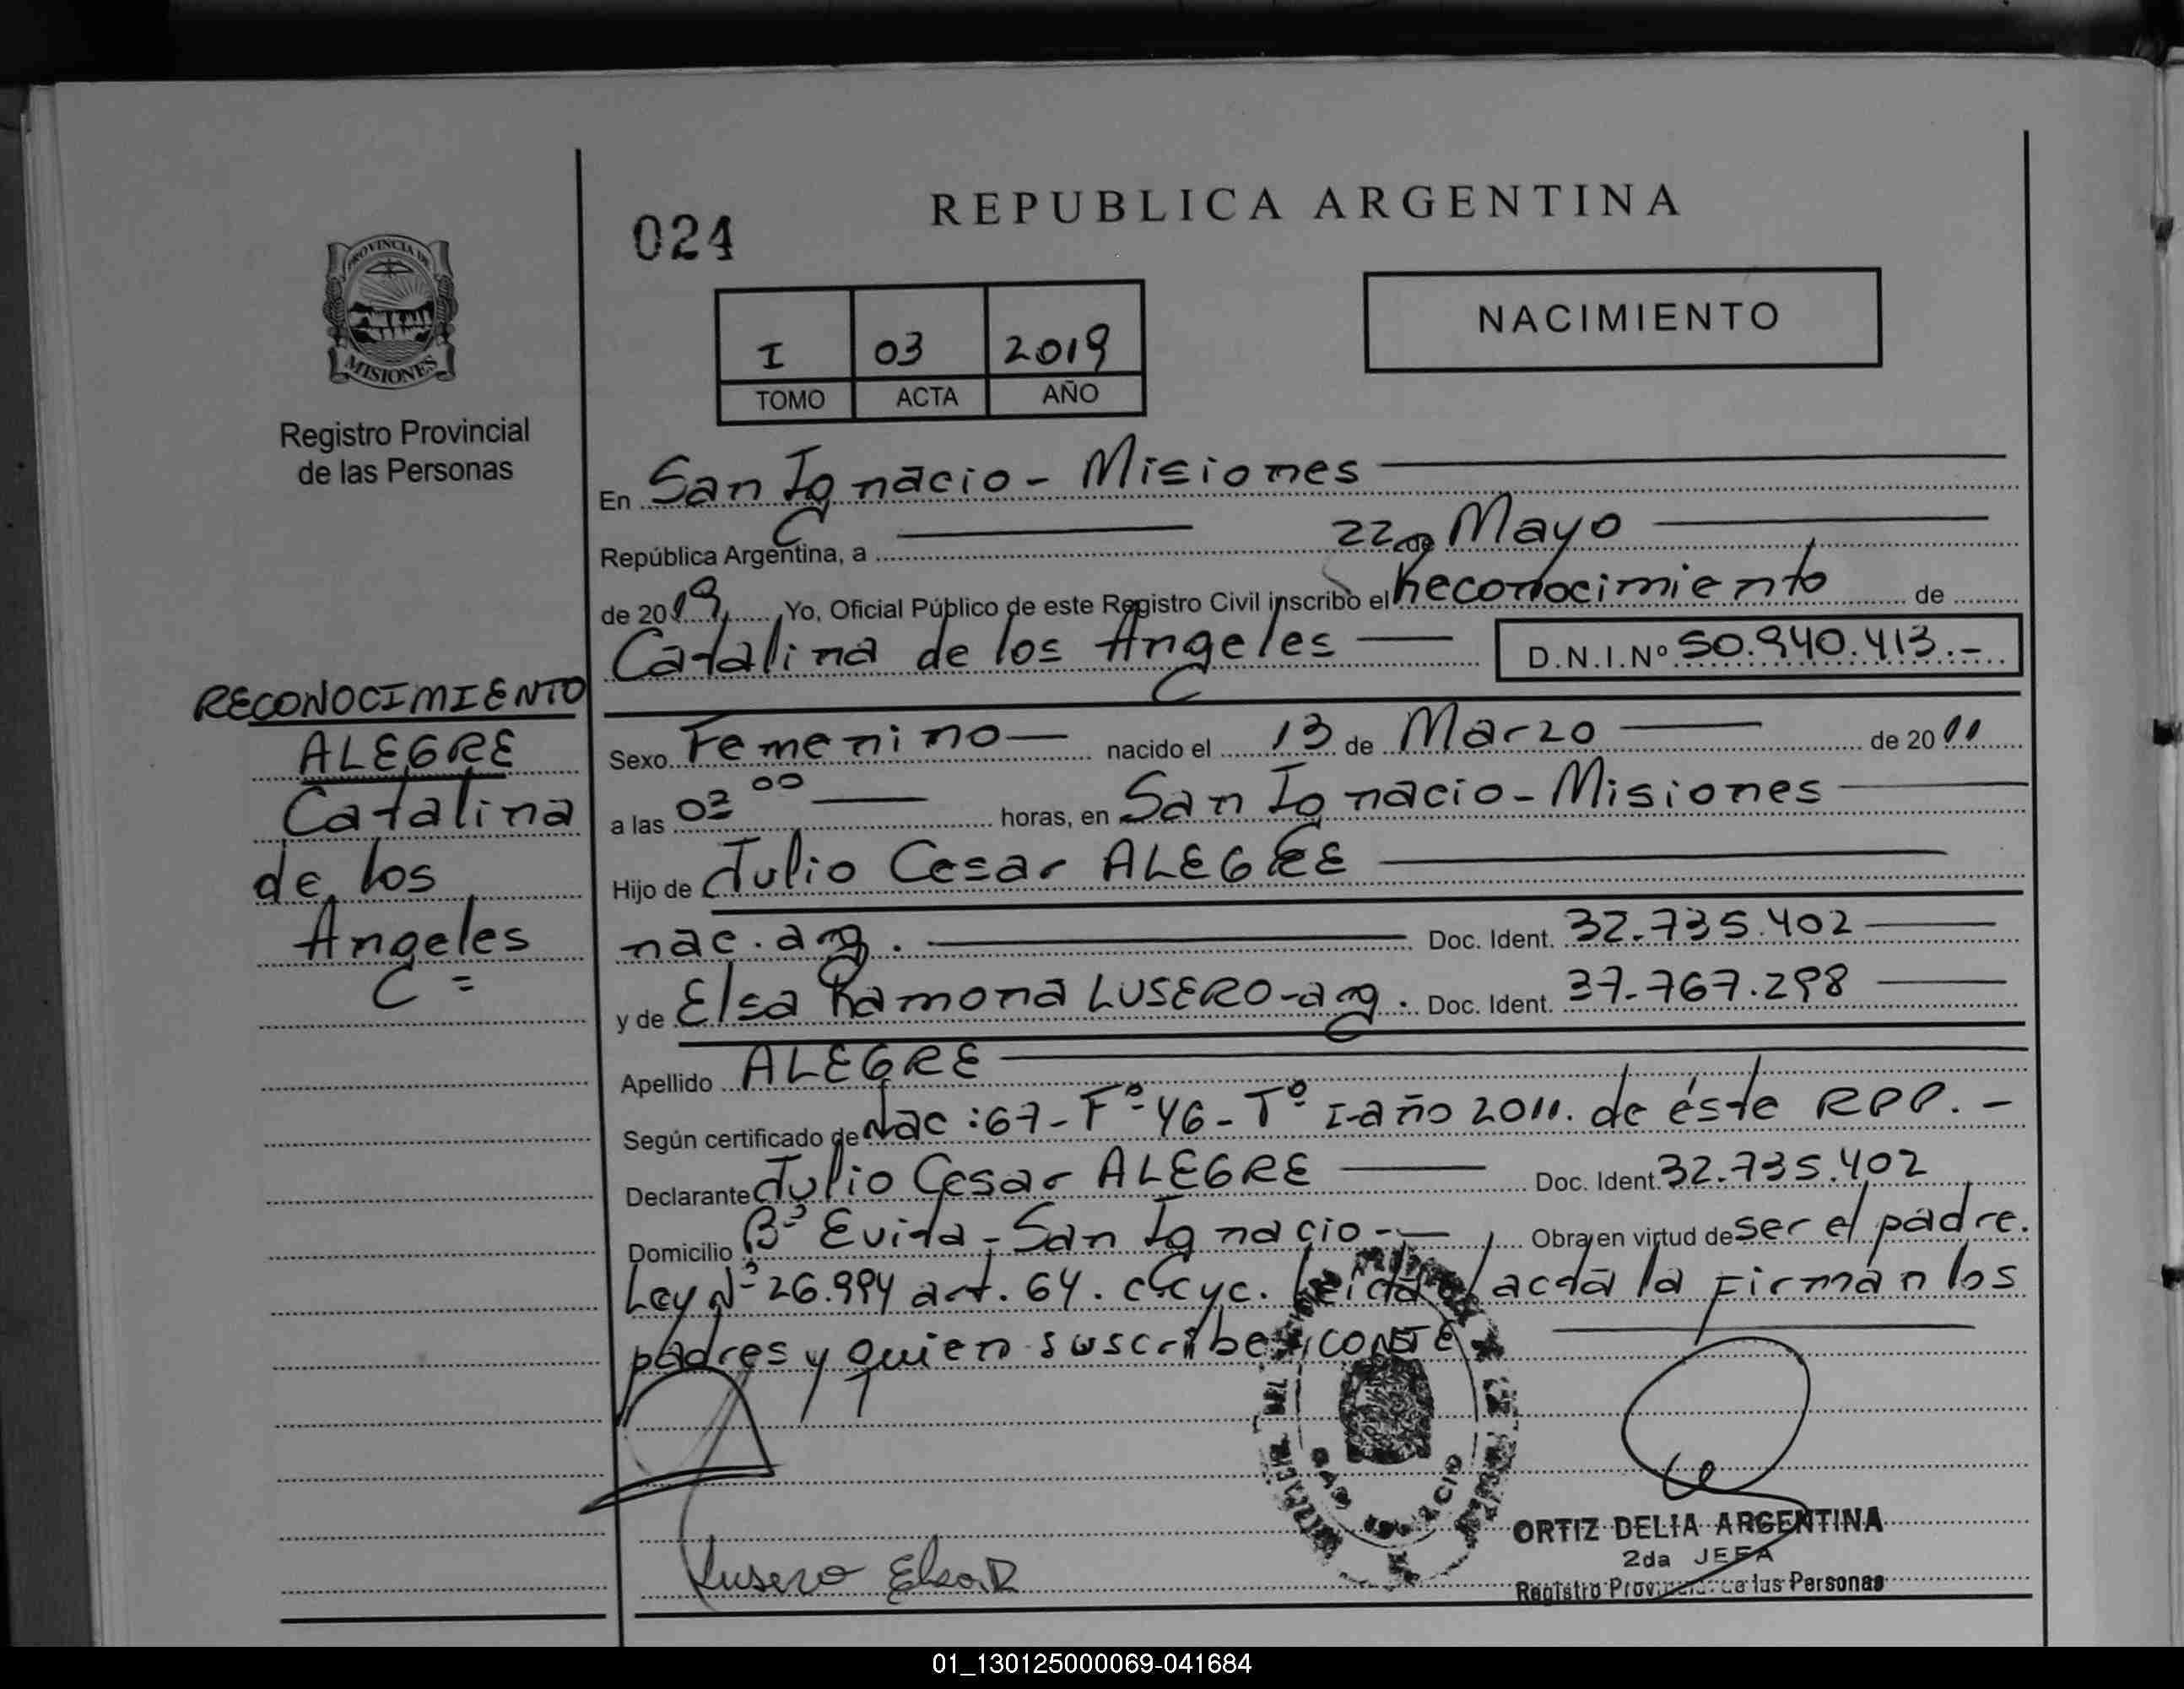 REPUBLICA ARGENTINA
024
NACIMIENTO
I 03 2019
TOMO ACTA AÑO
PROVINCIA DE
MISIONES
Registro Provincial
de las Personas
En San Ignacio - Misiones
República Argentina, a 22 de Mayo
de 2019 Yo, Oficial Público de este Registro Civil inscribo el Reconocimiento de
Catalina de los Angeles D.N.I.Nº 50.940.413.-
RECONOCIMIENTO
ALEGRE
Catalina
de los
Angeles =
Sexo Femenino nacido el 13 de Marzo de 2011
a las 03 00 horas, en San Ignacio - Misiones
Hijo de Julio Cesar ALEGRE
nac. arg. Doc. Ident. 32.735.402
y de Elsa Ramona LUSERO - arg. Doc. Ident. 37.767.298
Apellido ALEGRE
Según certificado de Nac: 67 - Fº 46 - Tº I - año 2011. de éste RPP. -
Declarante Julio Cesar ALEGRE Doc. Ident. 32.735.402
Domicilio Bº Evita - San Ignacio - Obra en virtud de ser el padre.
Ley Nº 26.994 art. 64. CCyC. Leida el acta la Firman los
padres y quien suscribe CONSTE
Lusero Elsa R
ORTIZ DELIA ARGENTINA
2da JEFA
Registro Provincial de las Personas
01_130125000069-041684